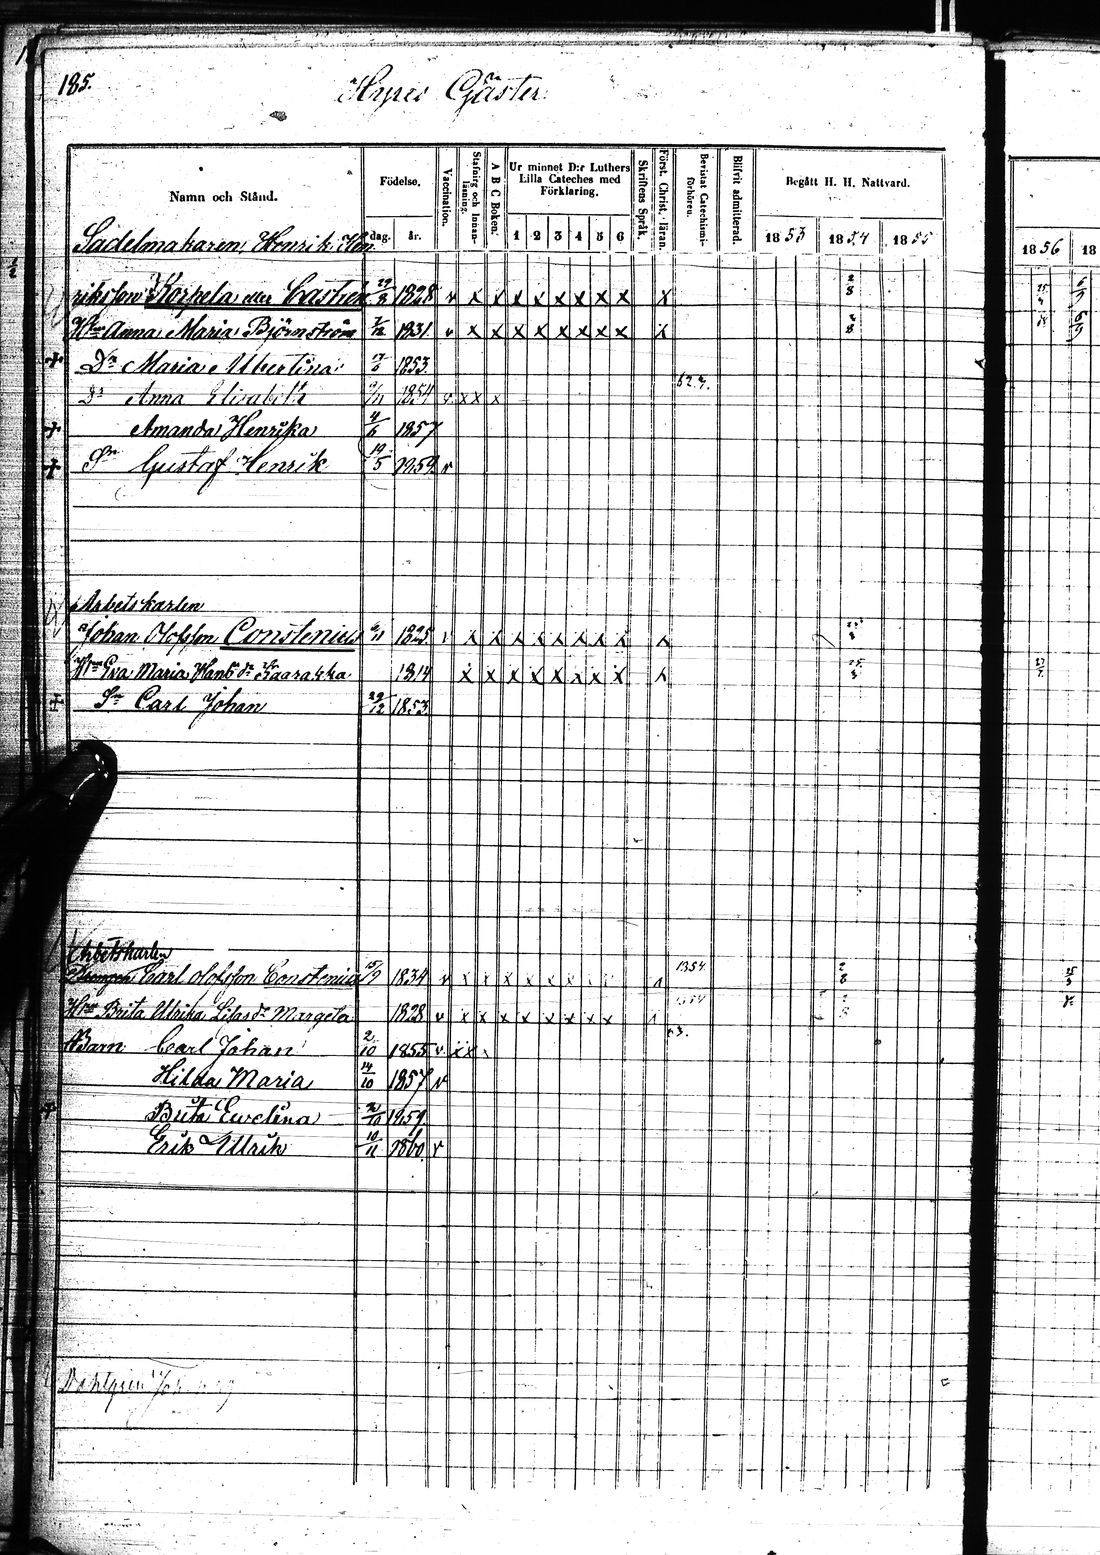 185.
Hyres Gäster
Namn och Stånd.
Födelse.
dag.
år.
Vaccination.
Stafning och Innanläsning.
A B C Boken.
Ur minnet D:r Luthers Lilla Cateches med Förklaring.
1 2 3 4 5 6
Skriftens Språk.
Först. Christ. läran.
Bevistat Catechismiförhören.
Blifvit admitterad.
Begått H. H. Nattvard.
1853 1854 1855
1856 18
Sadelmakaren Henrik Hen
riksson Korpela eller Castrén 29/8 1828 v x x x x x x x x x 2/8
Hru Anna Maria Björnström 1831 v x x x x x x x x x
Dr Maria Albertina 1853.
Dr Anna Elisabeth 1854 v x x x 62
Amanda Henrika 4/6 1857
Sn Gustaf Henrik 19/5 1859 v
Arbetskarlen
Johan Olofsson Constenius 1825 v x x x x x x x x x
Hru Eva Maria Hansdr 1814 x x x x x x x x x
Sn Carl Johan 29/12 1853.
Arbetskarlen
Drengen Carl Olofsson Constenius 15/9 1834 v x x x x x x 1854
Hru Brita Ulrika Lisasdr Margeta 1828 v x x x x x x x x
Barn Carl Johan 2/10 1855 v x x
Hilda Maria 14/10 1857 v
Brita Ewelina 1859
Erik Ulrik 10/11 1860. v